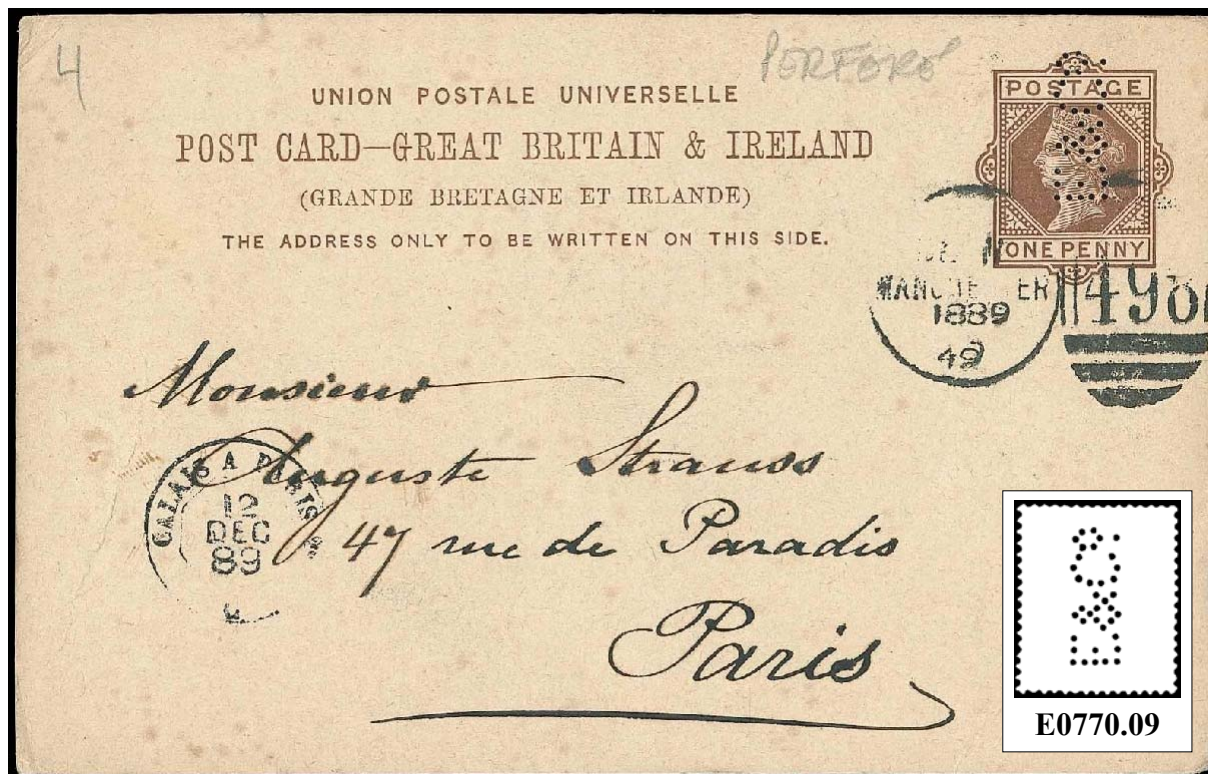 4
PERFORÉ
UNION POSTALE UNIVERSELLE
POST CARD–GREAT BRITAIN & IRELAND
(GRANDE BRETAGNE ET IRLANDE)
THE ADDRESS ONLY TO BE WRITTEN ON THIS SIDE.
POSTAGE
ONE PENNY
MANCHESTER
1889
49
498
Monsieur
Auguste Strauss
47 rue de Paradis
Paris
CALAIS A PARIS
12
DEC
89
E&C°
E0770.09